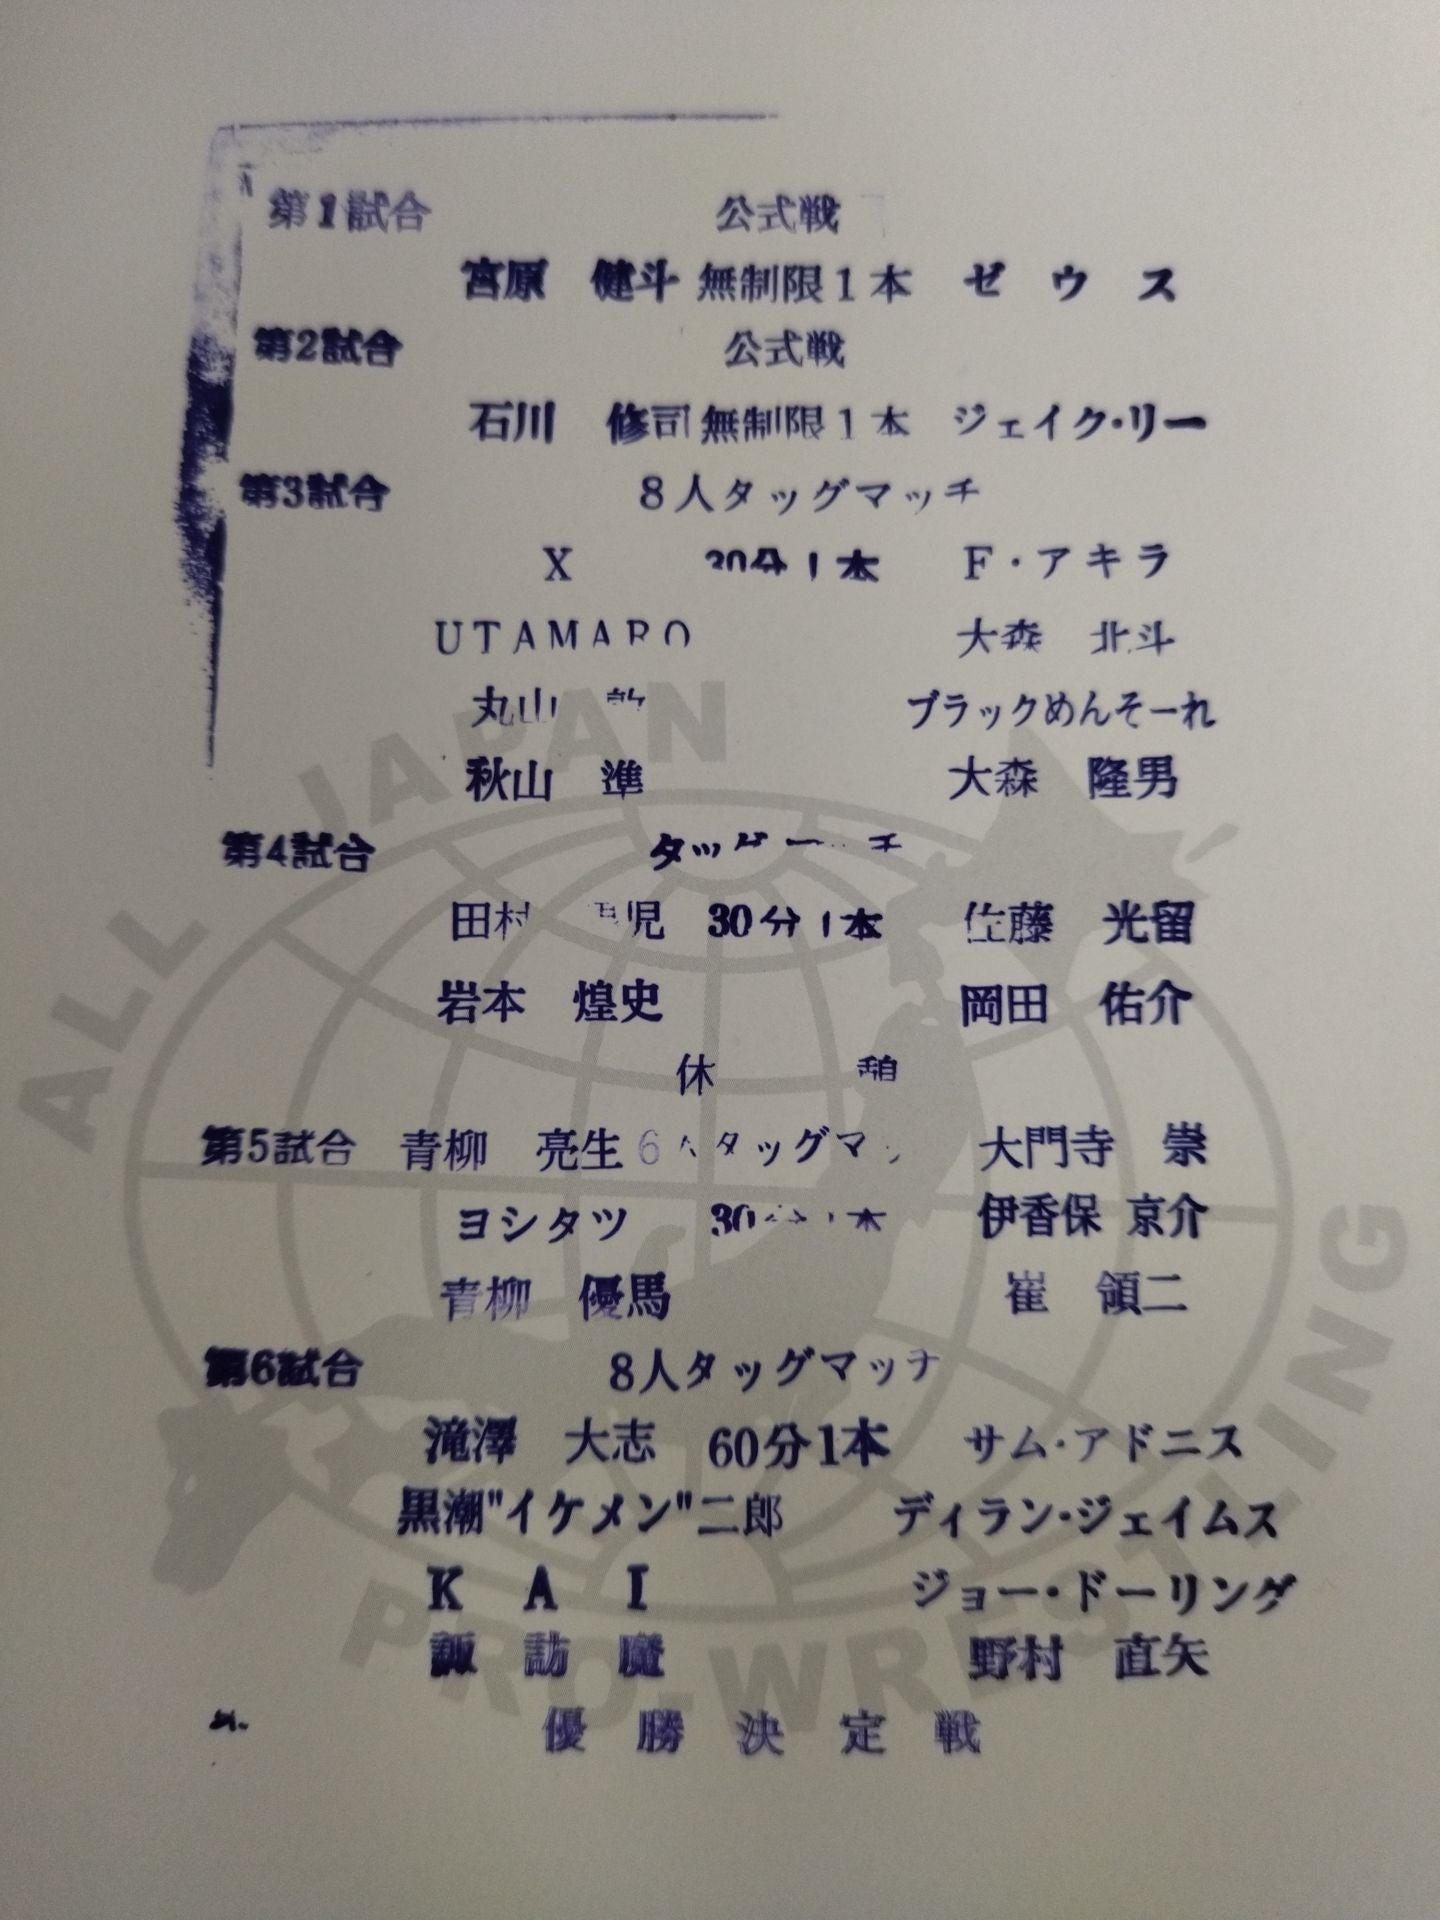 第1試合 公式戦
宮原 健斗 無制限1本 ゼウス
第2試合 公式戦
石川 修司 無制限1本 ジェイク・リー
第3試合 8人タッグマッチ
X 30分1本 F・アキラ
UTAMARO 大森 北斗
丸山 敦 ブラックめんそーれ
秋山 準 大森 隆男
第4試合 タッグマッチ
田村 男児 30分1本 佐藤 光留
岩本 煌史 岡田 佑介
休憩
第5試合 青柳 亮生 6人タッグマッチ 大門寺 崇
ヨシタツ 30分1本 伊香保 京介
青柳 優馬 崔 領二
第6試合 8人タッグマッチ
滝澤 大志 60分1本 サム・アドニス
黒潮"イケメン"二郎 ディラン・ジェイムス
KAI ジョー・ドーリング
諏訪魔 野村 直矢
優勝決定戦
ALL JAPAN
PRO-WRESTLING